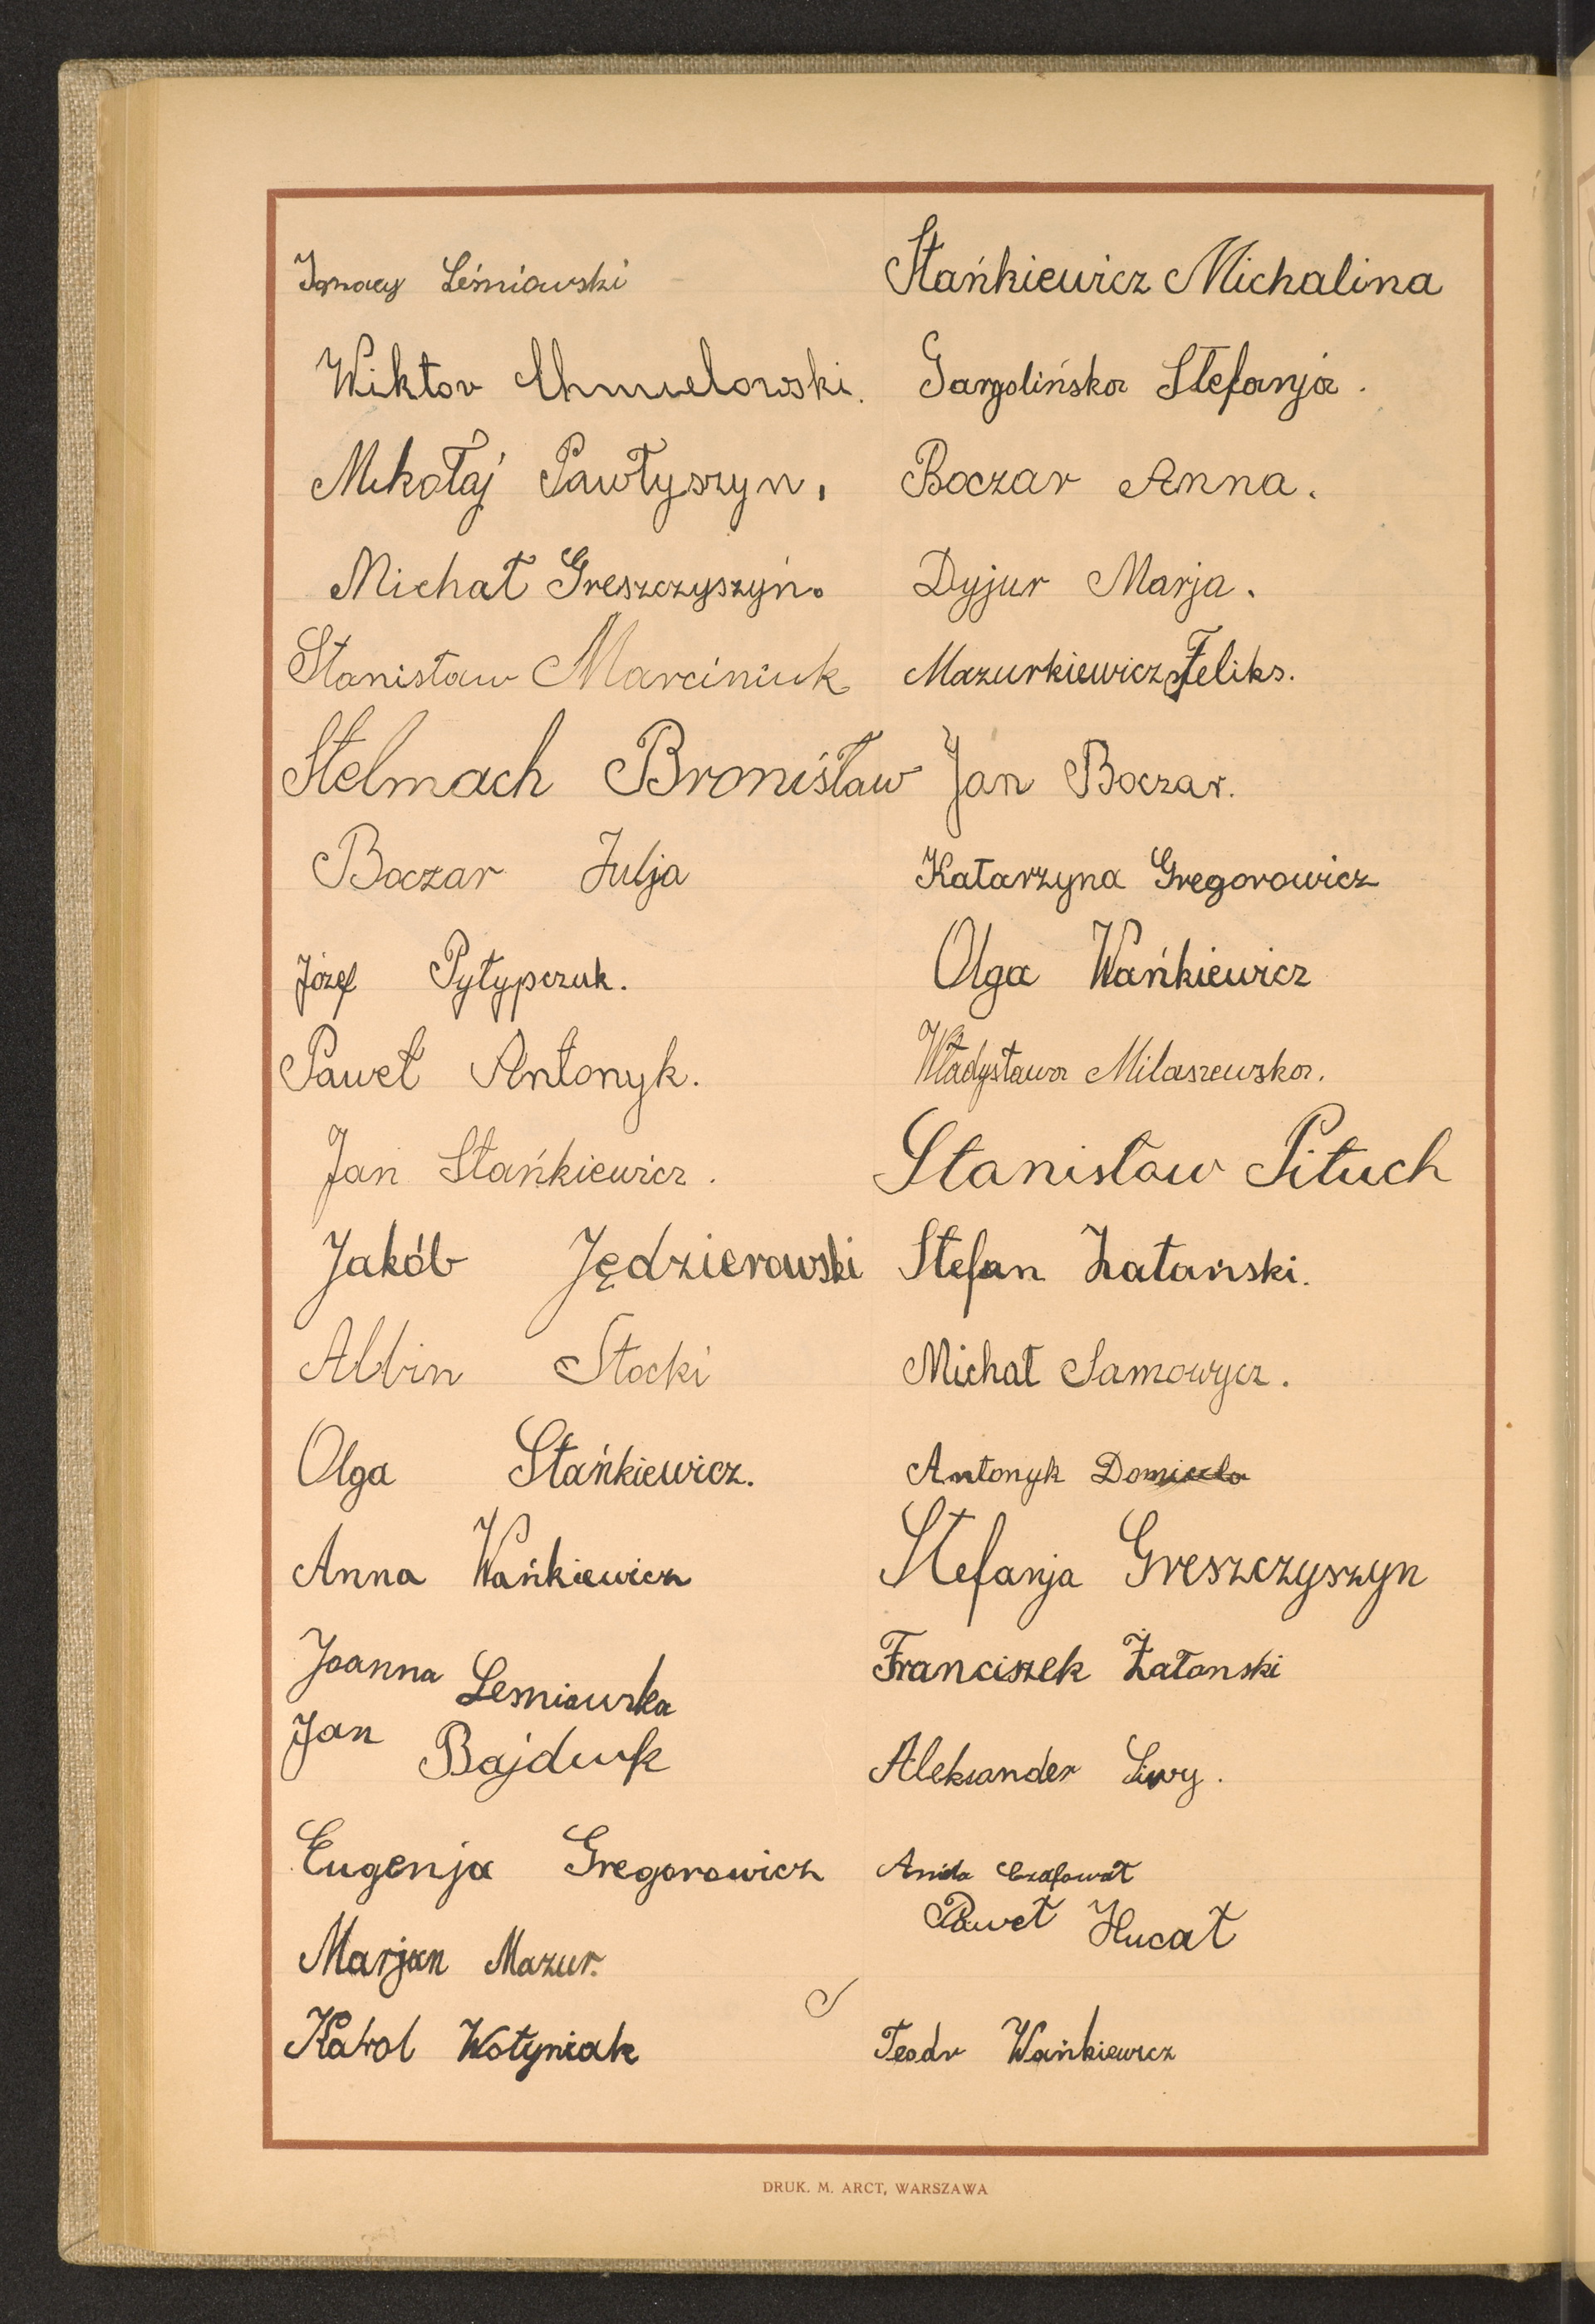 Ignacy Leśniowski
Wiktor Chmielowski.
Mikołaj Pawłyszyn.
Michał Greszczyszyn.
Stanisław Marciniuk
Stelmach Bronisław
Boczar Julja
Józef Pyłypczuk.
Paweł Antonyk.
Jan Stańkiewicz.
Jakób Jędzierowski
Albin Stocki
Olga Stańkiewicz.
Anna Wańkiewicz
Joanna Lesniowska
Jan Bajduk
Eugenja Gregorowicz
Marjan Mazur.
Karol Wołyniak
Stańkiewicz Michalina
Gargolińska Stefanja.
Boczar Anna.
Dyjur Marja.
Mazurkiewicz Feliks.
Jan Boczar.
Katarzyna Gregorowicz
Olga Wańkiewicz
Władysława Milaszewska.
Stanisław Pituch
Stefan Załański.
Michał Samowycz.
Antonyk
Stefanja Greszczyszyn
Franciszek Załanski
Aleksander Siwy.
Paweł Hucał
Teodr Wańkiewicz
DRUK. M. ARCT, WARSZAWA